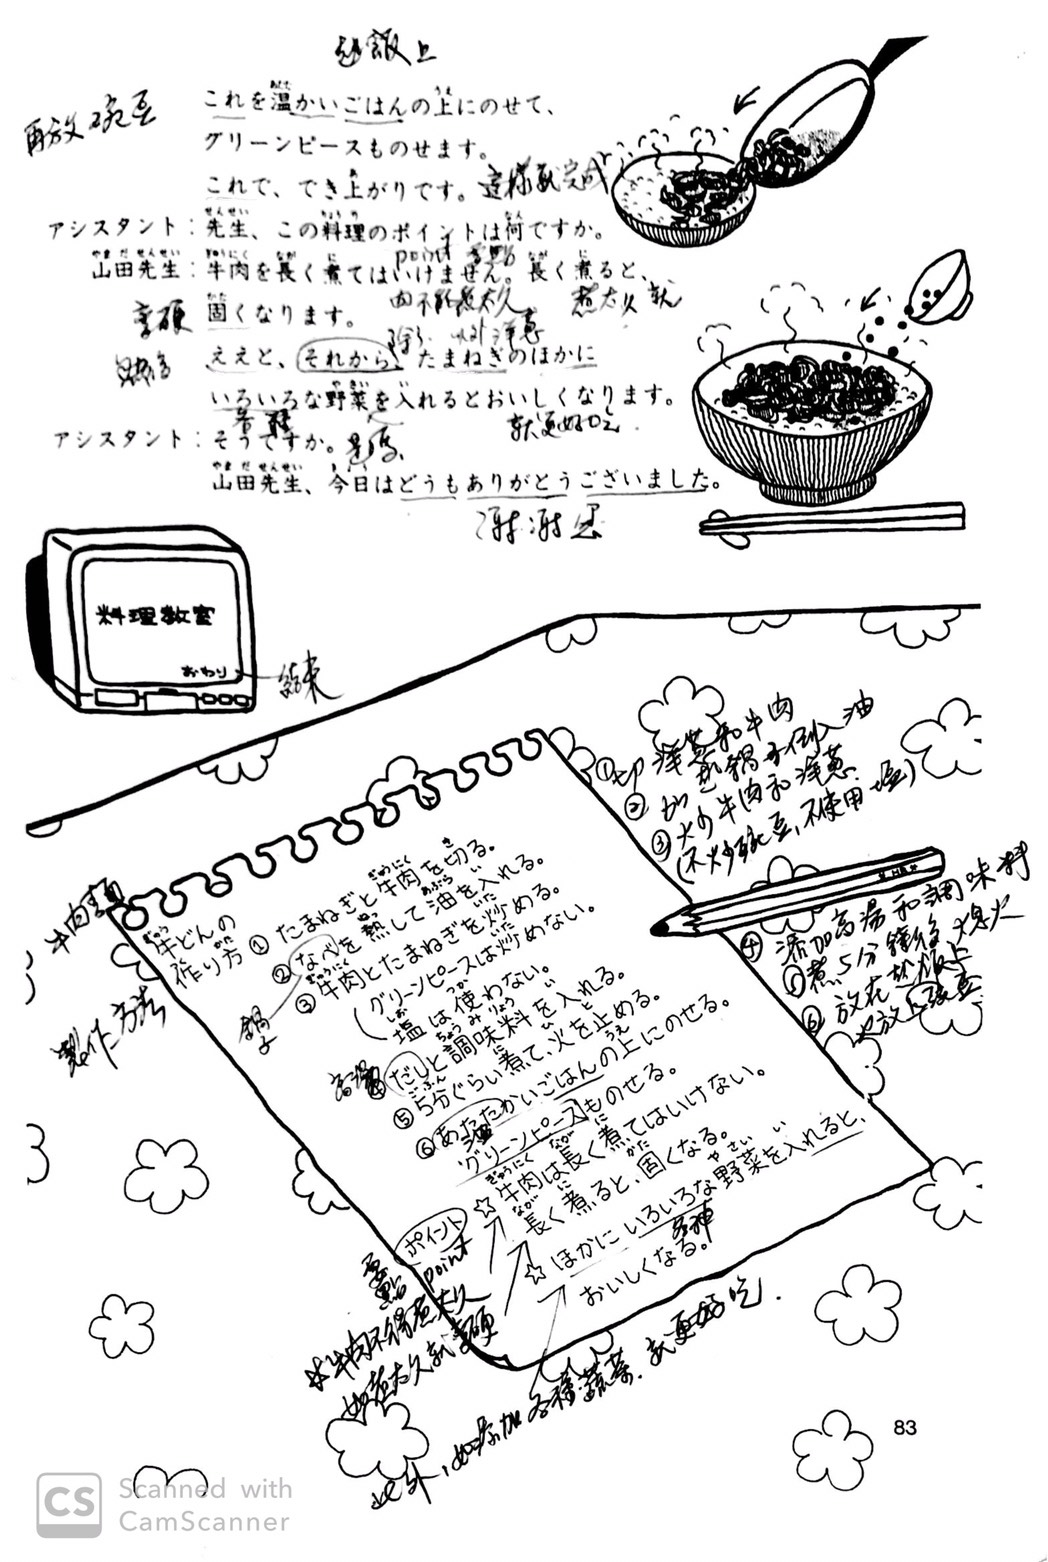 熱飯上
再放碗豆
これを温かいごはんの上にのせて、
グリーンピースものせます。
これで、でき上がりです。這樣就完成
アシスタント：先生、この料理のポイントは何ですか。
point 要點
山田先生：牛肉を長く煮てはいけません。長く煮ると、
肉不能煮太久 煮太久就
變硬 固くなります。
除 以外 洋蔥
ええと、それから、たまねぎのほかに
いろいろな野菜を入れるとおいしくなります。
就更好吃
アシスタント：そうですか。是嗎
山田先生、今日はどうもありがとうございました。
謝謝您
料理教室
おわり 結束
①切 洋蔥和牛肉
②熱鍋子倒入油
③火炒牛肉和洋蔥
(不炒豌豆,不使用塩)
④添加高湯和調味料
⑤煮5分鐘後熄火
⑥放在熱飯上
也放上豌豆
製作方法
牛どんの
作り方
①たまねぎと牛肉を切る。
②なべを熱して油を入れる。
③牛肉とたまねぎを炒める。
(グリーンピースは炒めない。
塩は使わない。
鍋子
高湯
④だしと調味料を入れる。
⑤5分ぐらい煮て、火を止める。
⑥あたたかいごはんの上にのせる。
グリーンピースものせる。
ポイント
要點 point
☆牛肉は長く煮てはいけない。
長く煮ると、固くなる。
☆ほかにいろいろな野菜を入れると、
各種
おいしくなる。
*牛肉不得煮太久
如煮太久就變硬
此外,如添加各種蔬菜,就更好吃.
83
CS Scanned with
CamScanner